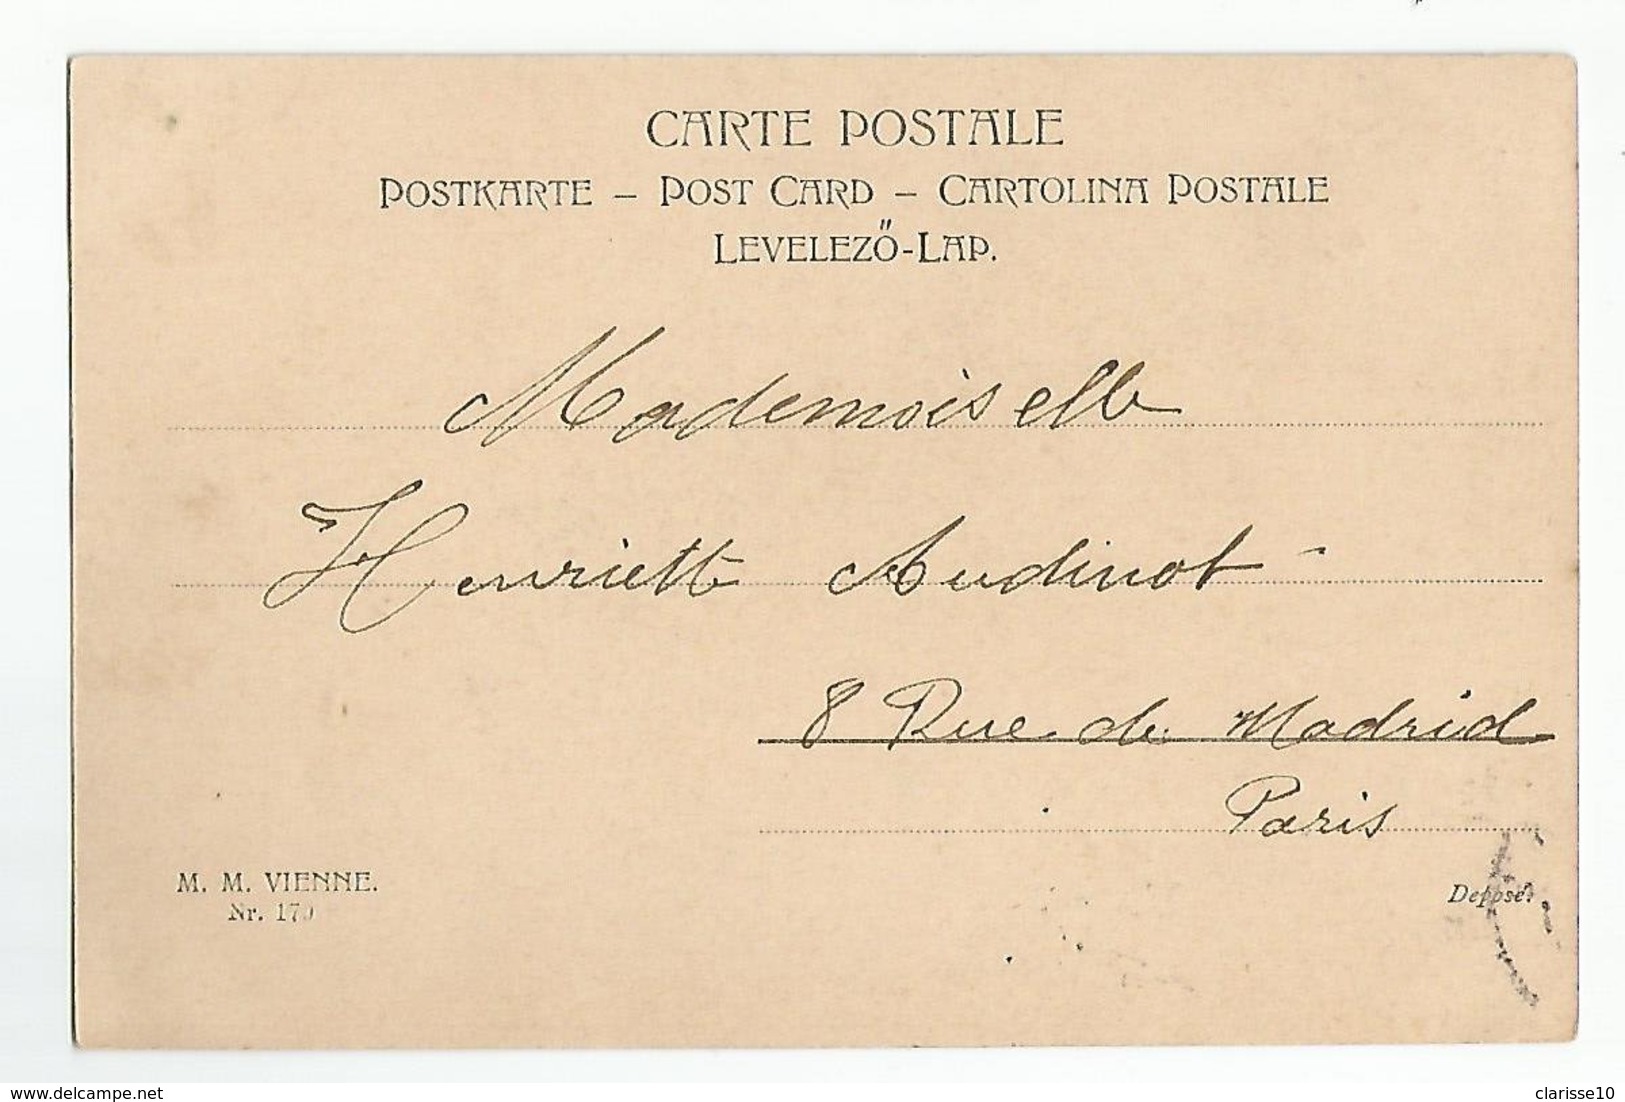 CARTE POSTALE
POSTKARTE – POST CARD – CARTOLINA POSTALE
LEVELEZŐ-LAP.
Mademoiselle
Henriette Audinot
8 Rue de Madrid
Paris
M. M. VIENNE.
Nr. 170
Deposé.
delcampe.net
clarisse10